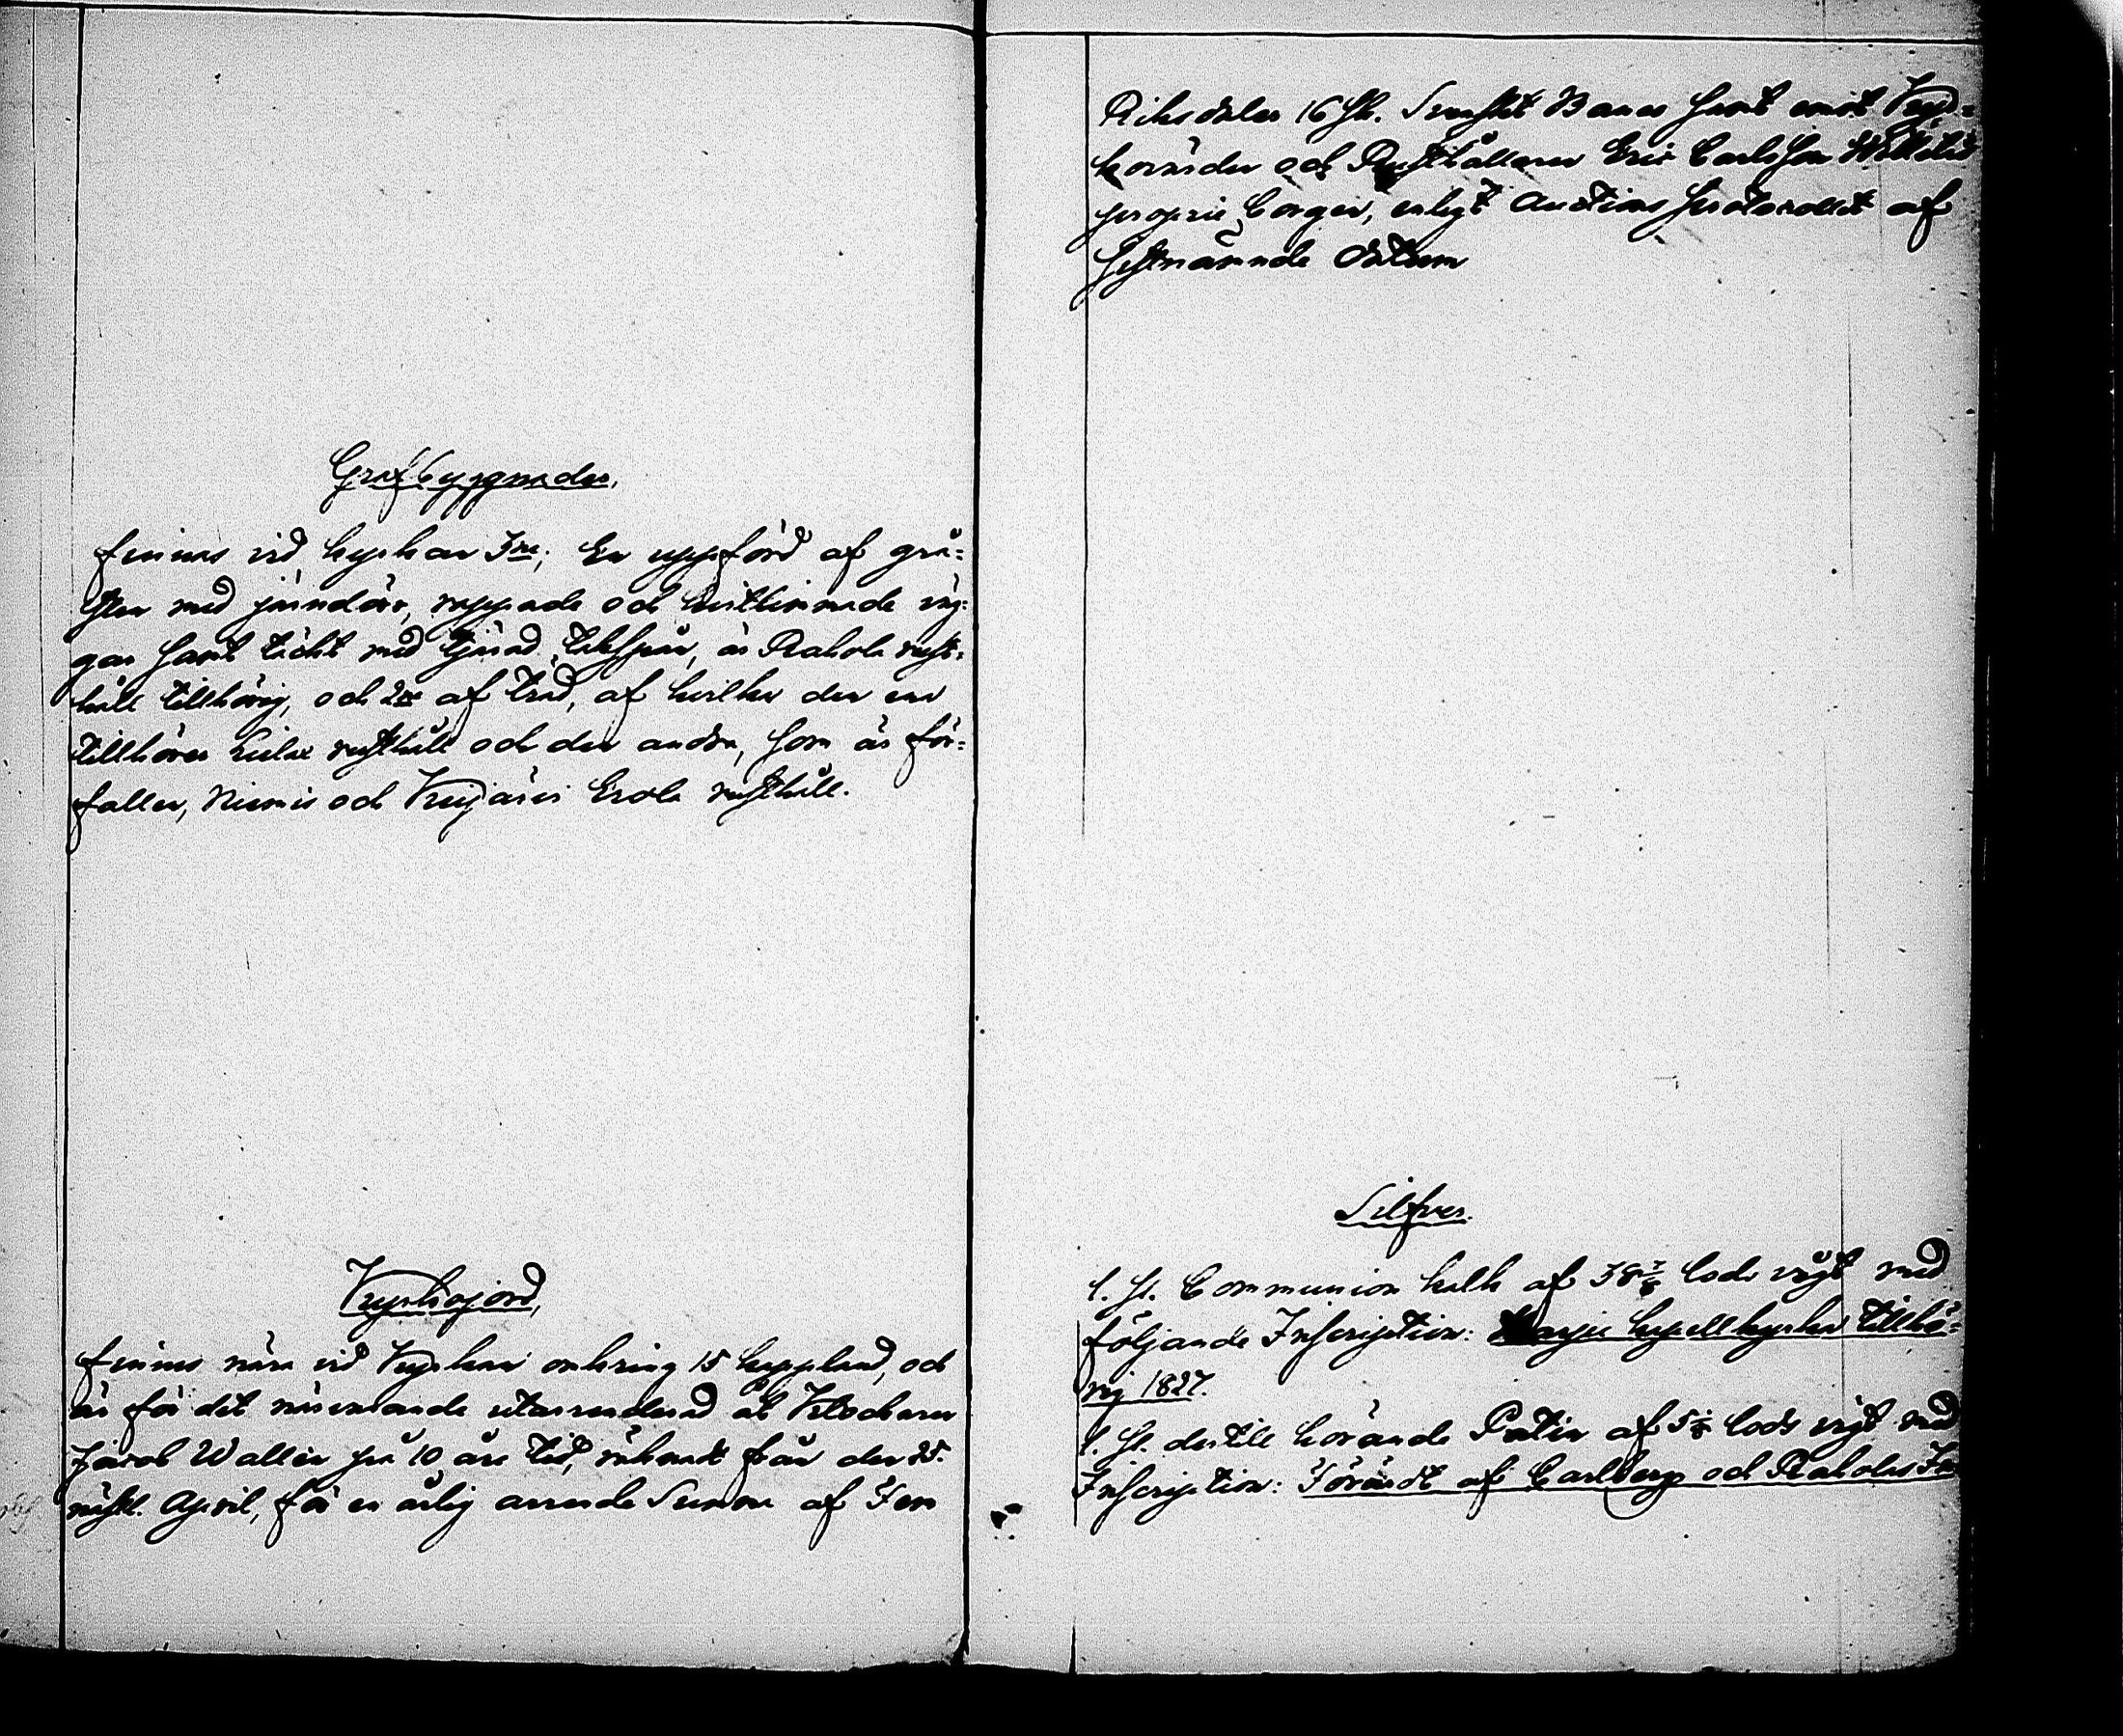 Grafbyggnader,
finnes vid kyrkan 3ne; En uppförd af grå-
sten med järndörr, rappade och hvitlimmade väg-
gar samt täckt med tjärad takspån, är Rahola rust-
håll tillhörig, och 2ne af träd, af hvilka den ena
tillhörer rusthåll och den andra, som är för-
fallen, Niemis och Erola rusthåll.
Kyrkojord,
finnes nära vid Kyrkan omkring 15 kappland, och
är för det närvarande utarrenderad åt Klockaren
Jacob Wallin på 10 års tid, räknadt från den 25.
nästl. April, för en årlig arrende Summa af Fem
Riksdaler 16 sk. Svenskt Banco samt emot
och Rusthållaren Eric Carlsson
proprie borgen, enligt Auctions protocollet af
sistnämnde Datum
Silfver.
1. st. Communion kalk af 38 7/8 lods vigt med
följande Inscription: kapell kyrka tillhö-
rig 1827.
1. st. dertill hörande Patin af 5 lods vigt med
Inscription: Förärdt af Carlberg och Raholas